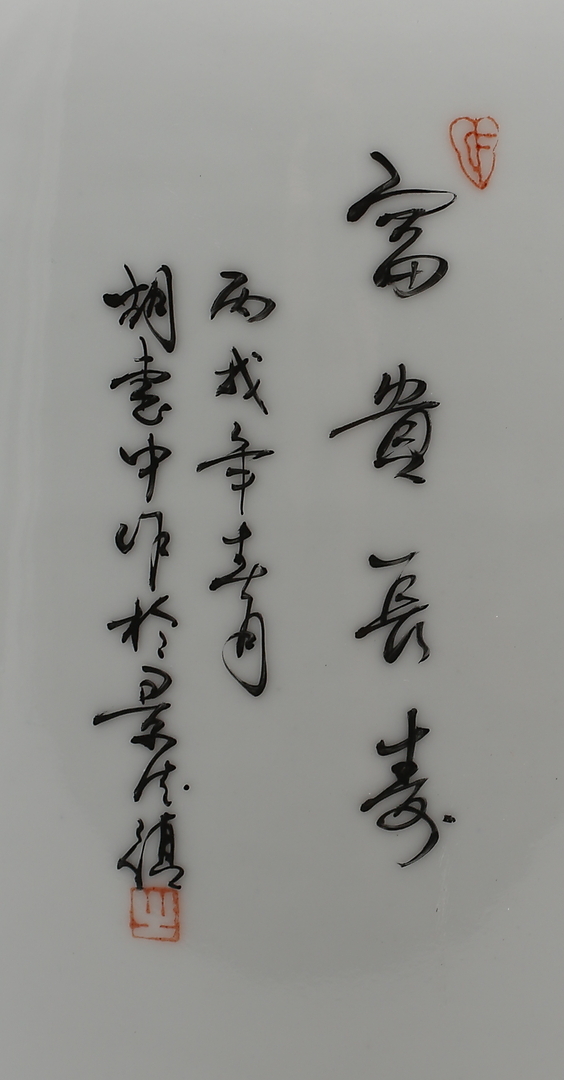 富貴長壽
丙戌年春月
胡雲中作於景德鎮